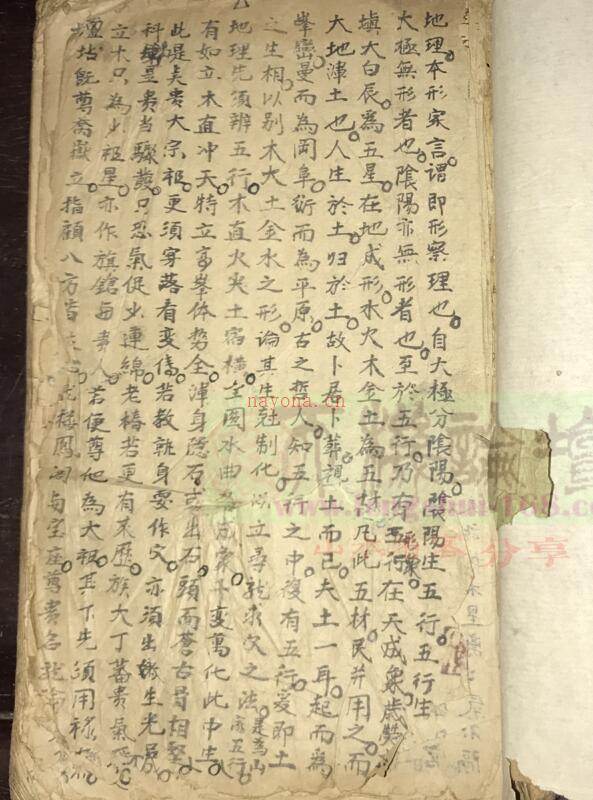 地理本形家言謂即形察理也自大極分陰陽陰陽生五行五行生
大極無形者也陰陽亦無形者也至於五行乃有形象五行在天成象歲熒
填大白辰為五星在地成形水火木金土為五材凡此五材民并用之而
大地渾土也人生於土归於土故卜居卜葬視土而已夫土一耳起而為
峯巒曼而為岡阜衍而為平原古之哲人知五行之中復有五行爰即土
之生相以别木火土金水之形論其生尅制化以立尋龍求穴之法是為山家五行
地理先須辨五行木直火尖土宿橫金圓水曲為成象千變萬化此中生
有如立木直冲天特立高峯体势全渾身隐石或出石頭面蒼古骨相堅
此是天贵大宗祖更須穿落看变僐若教就身要作穴亦須出
科星贵当驟發只忍氣促少連綿老椿若更有來歷族大丁蕃贵氣
立木只為少祖星亦作旗鎗与贵人若便尊他為大祖其下先須用祿
壇坫旣尊喬嶽立指顧八方皆
樓鳳閣与宝座尊贵名龍
nayona.cn